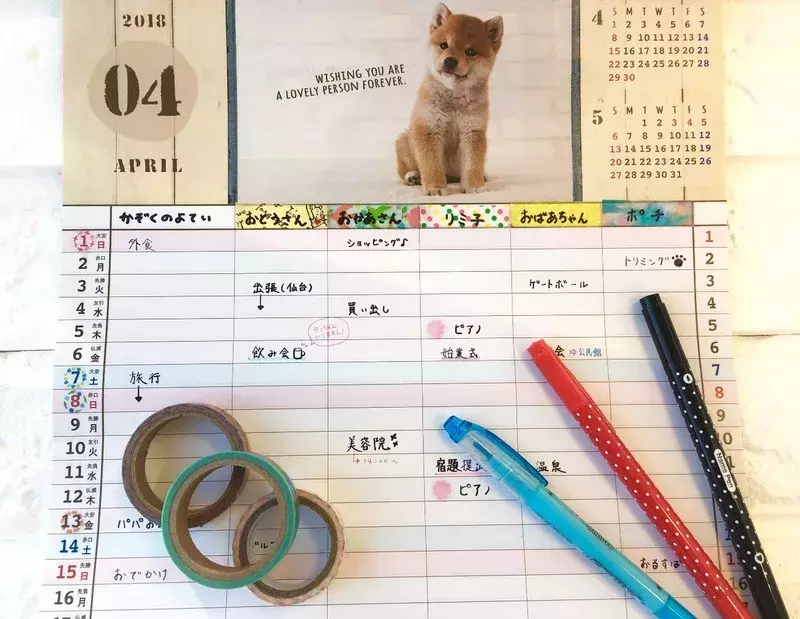 2018
04
APRIL
WISHING YOU ARE
A LOVELY PERSON FOREVER.
4 S M T W T F S
1 2 3 4 5 6 7
8 9 10 11 12 13 14
15 16 17 18 19 20 21
22 23 24 25 26 27 28
29 30
5 S M T W T F S
1 2 3 4 5
6 7 8 9 10 11 12
13 14 15 16 17 18 19
20 21 22 23 24 25 26
27 28 29 30 31
かぞくのよてい おとうさん おかあさん リミ子 おばあちゃん ポチ
1 大安 日 外食 ショッピング♪ 1
2 赤口 月 トリミング 2
3 先勝 火 出張(仙台) ゲートボール 3
4 友引 水 買い出し 4
5 先負 木 ピアノ 5
6 仏滅 金 飲み会 始業式 会 公民館 6
7 大安 土 旅行 7
8 赤口 日 8
9 先勝 月 9
10 友引 火 美容院 10
14:00〜
11 先負 水 宿題提 温泉
12 仏滅 木 ピアノ
13 大安 金 パパお
14 赤口 土 "ル"
15 先勝 日 おでかけ おるすば 15
16 友引 月 16
Name Pen